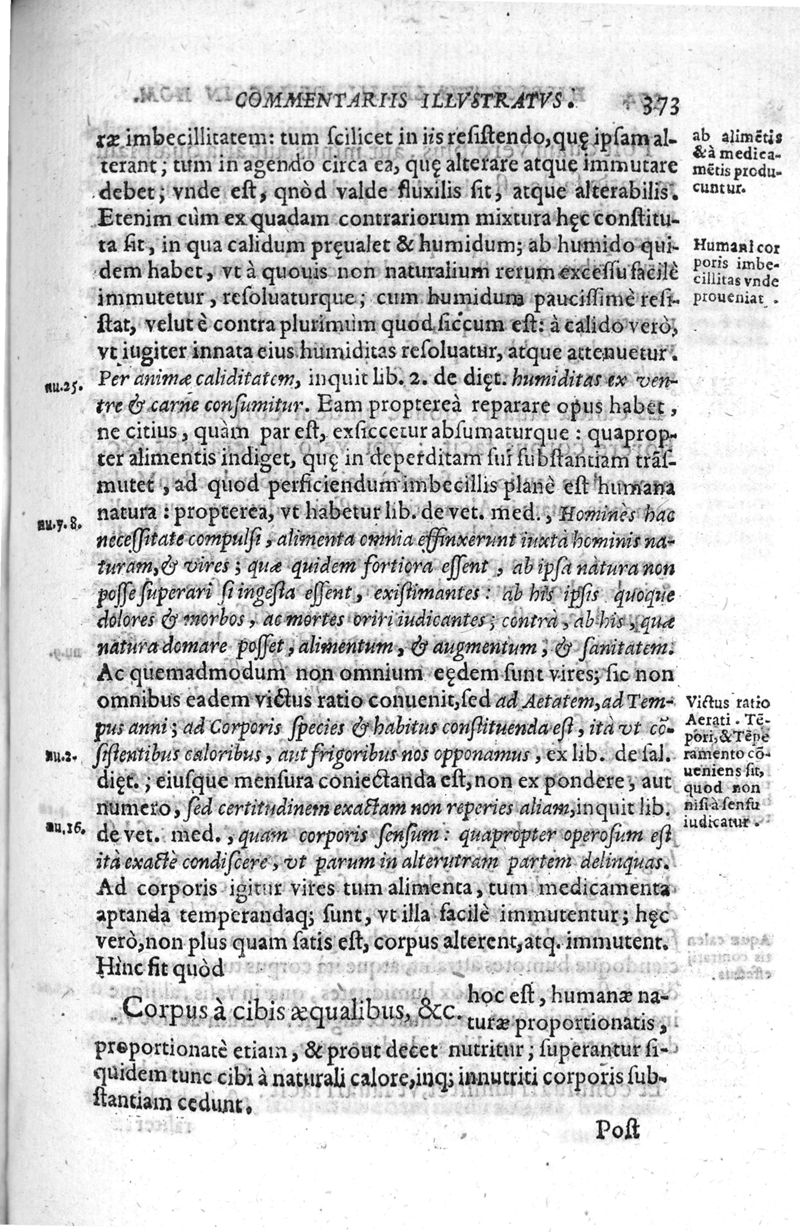 COMMENTARIIS ILLVSTRATVS. 373
ræ imbecillitatem: tum scilicet in iis resistendo, quę ipsam al-
terant; tum in agendo circa ea, quę alterare atque immutare
debet; vnde est, qnòd valde fluxilis sit, atque alterabilis.
Etenim cùm ex quadam contrariorum mixtura hęc constitu-
ta sit, in qua calidum pręualet & humidum; ab humido qui-
dem habet, vt à quouis non naturalium rerum excessu facilè
immutetur, resoluaturque; cum humidum paucissimè resi-
stat, velut è contra plurimum quod siccum est: à calido verò,
vt iugiter innata eius humiditas resoluatur, atque attenuetur.
Per animæ caliditatem, inquit lib. 2. de dięt. humiditas ex ven-
tre & carne consumitur. Eam proptereà reparare opus habet,
ne citius, quàm par est, exsiccetur absumaturque: quaprop-
ter alimentis indiget, quę in deperditam sui substantiam trās-
mutet, ad quod perficiendum imbecillis planè est humana
natura: propterea, vt habetur lib. de vet. med., Homines hac
necessitate compulsi, alimenta omnia effinxerunt iuxtà hominis na-
turam, & vires; quæ quidem fortiora essent, ab ipsa natura non
posse superari si ingesta essent, existimantes: ab his ipsis quoque
dolores & morbos, ac mortes oriri iudicantes; contrà, ab his, quæ
natura domare posset, alimentum, & augmentum, & sanitatem.
Ac quemadmodum non omnium eędem sunt vires; sic non
omnibus eadem victus ratio conuenit, sed ad Aetatem, ad Tem-
pus anni; ad Corporis species & habitus constituenda est, ità vt cō-
sistentibus caloribus, aut frigoribus nos opponamus, ex lib. de sal.
dięt.; eiusque mensura coniectanda est, non ex pondere, aut
numero, sed certitudinem exactam non reperies aliam, inquit lib.
de vet. med., quam corporis sensum: quapropter operosum est
ità exactè condiscere, vt parum in alterutram partem delinquas.
Ad corporis igitur vires tum alimenta, tum medicamenta
aptanda temperandaq; sunt, vt illa facilè immutentur; hęc
verò, non plus quam satis est, corpus alterent, atq. immutent.
Hinc fit quòd
Corpus à cibis æqualibus, &c. hoc est, humanæ na-
turæ proportionatis,
proportionatè etiam, & prout decet nutritur; superantur si-
quidem tunc cibi à naturali calore, inq; innutriti corporis sub-
stantiam cedunt.
Post
ab alimētis
& à medica-
mētis produ-
cuntur.
Humani cor
poris imbe-
cillitas vnde
proueniat.
nu.25.
nu.7.8.
Victus ratio
Aetati. Tē-
pori, & Tēpe
ramento cō-
ueniens sit,
quod non
nisi à sensu
iudicatur.
nu.2.
nu.16.